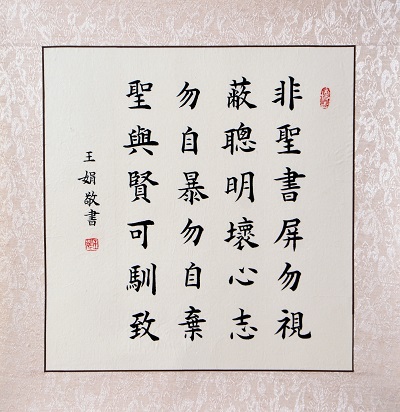 非聖書屏勿視
蔽聰明壞心志
勿自暴勿自棄
聖與賢可馴致
王娟敬書